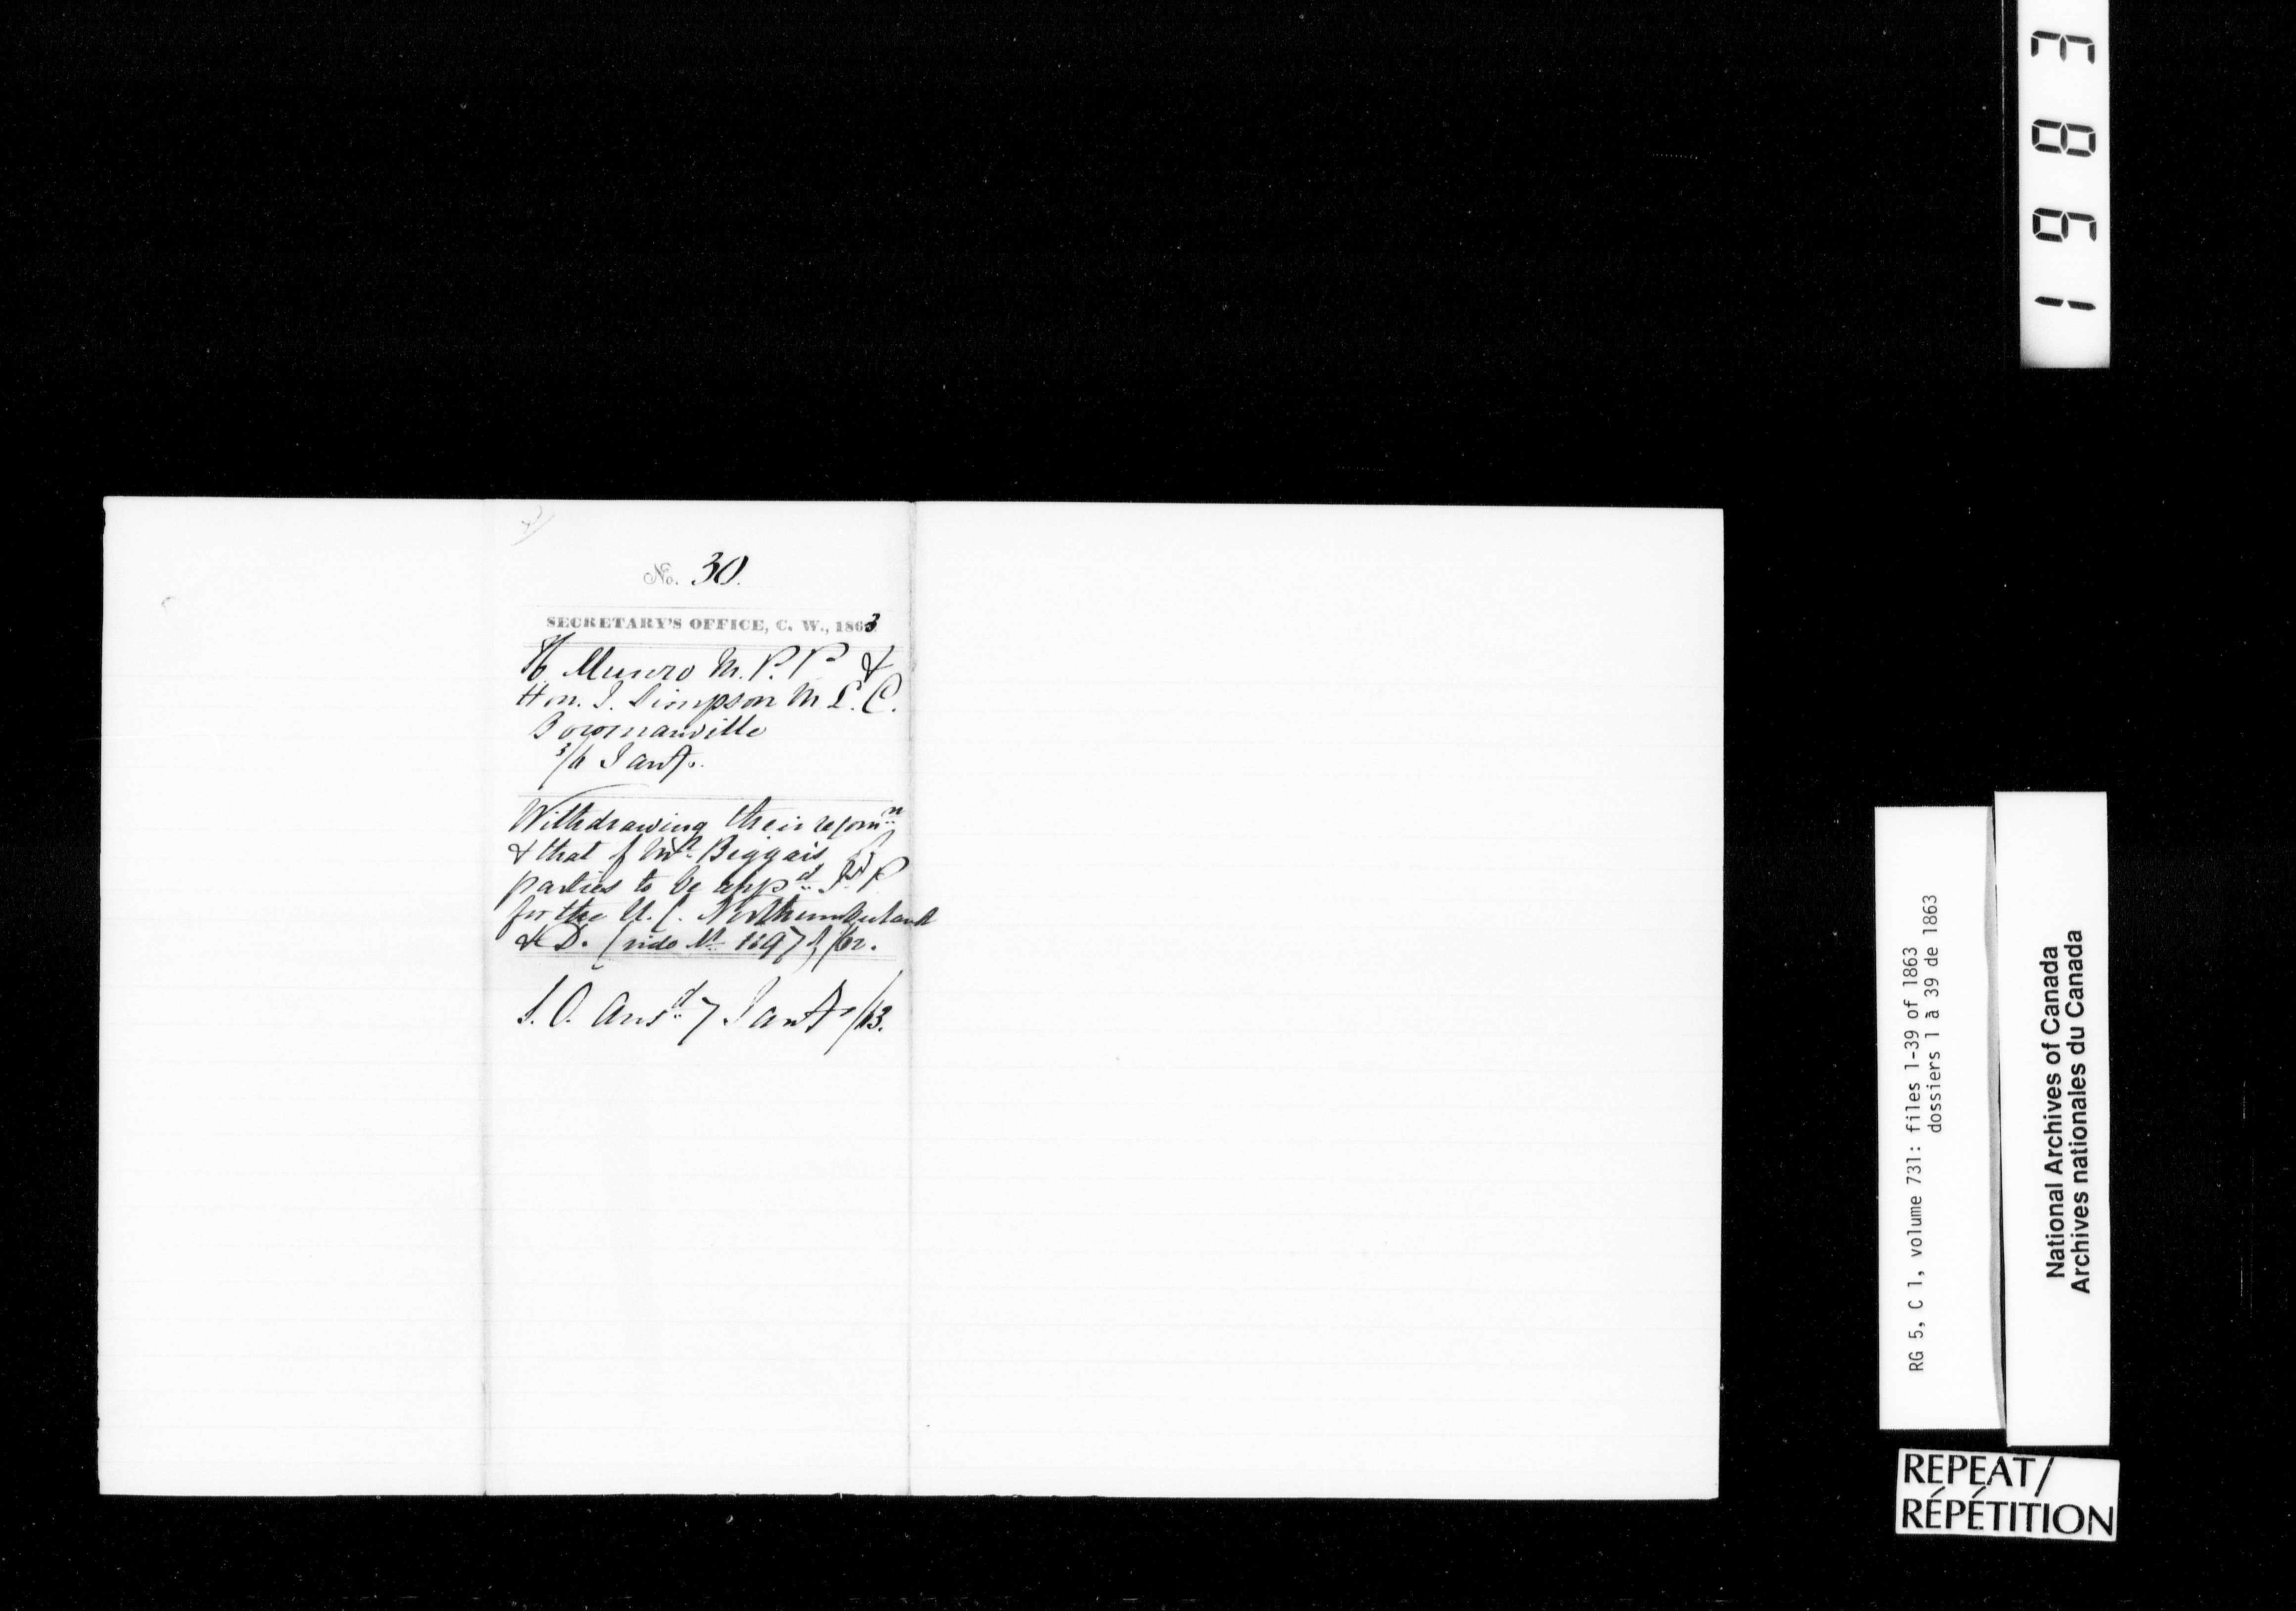 No. 30.
SECRETARY'S OFFICE, C. W., 1863
H. Munro M.P.P. &
Hon. J. Simpson M.L.C.
Bowmanville
3/6 Jany.
Withdrawing their recomn
& that of Mr. Biggar's of
parties to be appd J.P.
for the U. C. Northumberland
& D. (vide No 1897 of /62.
S.O. Ansd 7 Jany /63.
1 6 8 3
RG 5, C 1, volume 731: files 1-39 of 1863
dossiers 1 à 39 de 1863
National Archives of Canada
Archives nationales du Canada
REPEAT/
RÉPÉTITION